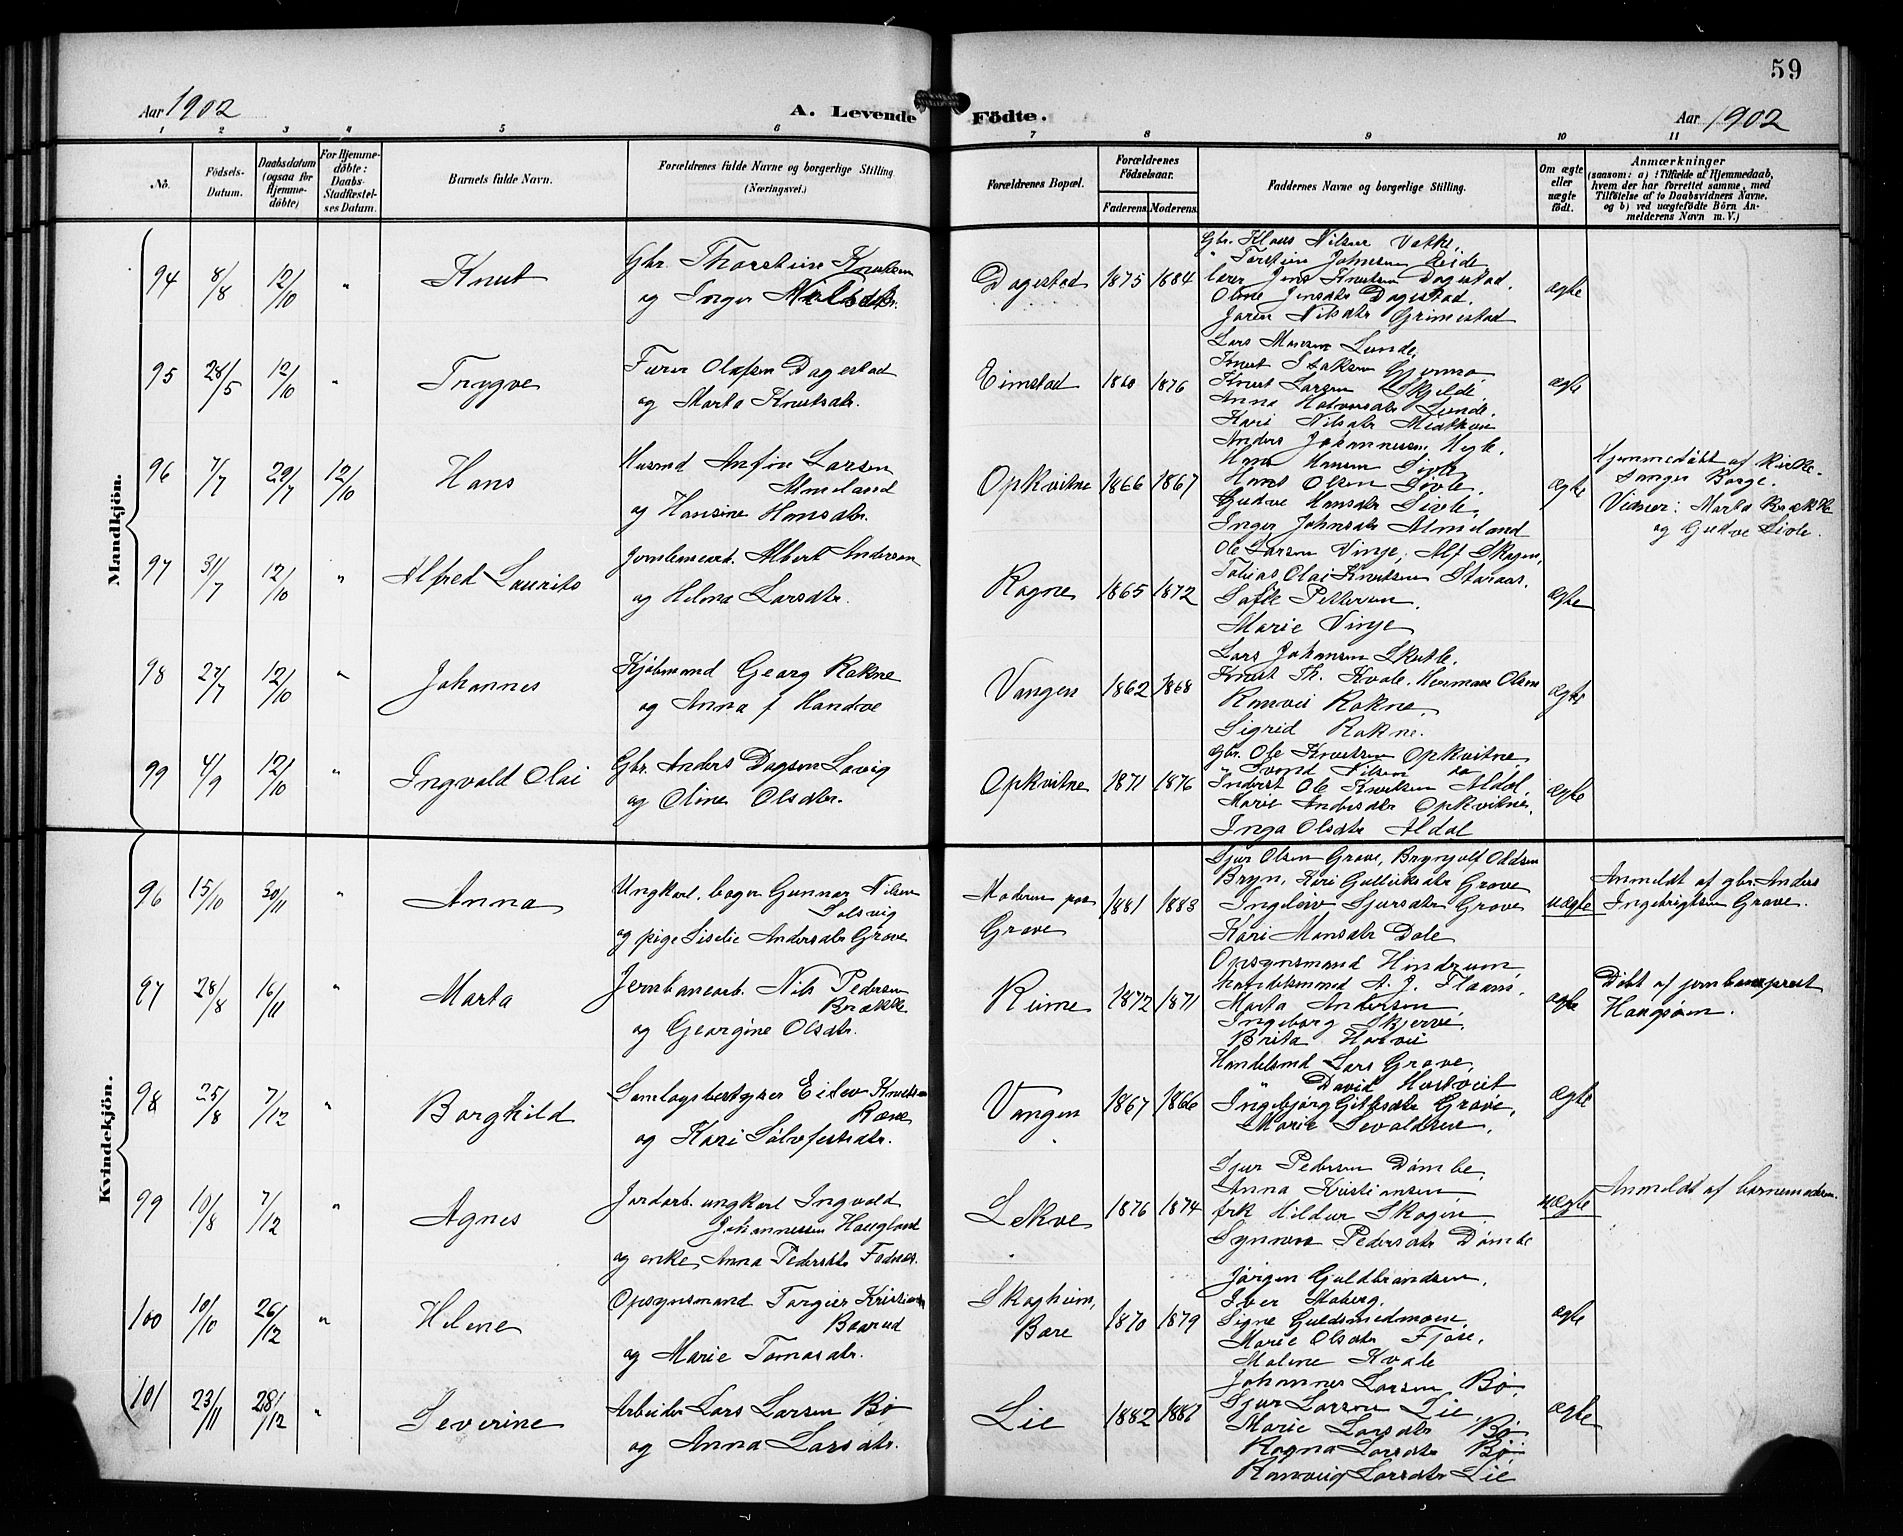 59
Aar 1902
A. Levende Födte.
Aar 1902
1 2 3 4 5 6 7 8 9 10 11
No.
Födsels-Datum.
Daabsdatum (ogsaa for Hjemme-döbte)
For Hjemme-döbte: Daabs-Stadfæstel-ses Datum.
Barnets fulde Navn.
Forældrenes fulde Navne og borgerlige Stilling (Næringsvei.)
Forældrenes Bopæl.
Forældrenes Födselsaar.
Faderens. Moderens.
Faddernes Navne og borgerlige Stilling.
Om ægte eller uægte födt.
Anmærkninger
(saasom: a) i Tilfælde af Hjemmedaab, hvem der har forrettet samme, med Tilföielse af to Daabsvidners Navne, og b) ved uægtefödte Börn Anmelderens Navn m. V.)
Mandkjön.
94 8/8 12/10 " Knut
Gbr. Thorstein Knutsen
og Inger Nilsdtr.
Dagestad 1875 1884
Gbr. Klaus Nilsen
" Torstein Johnsen Eide
lærer Jens Knutsen Dagestad.
Oline Jensdtr Dagestad.
Joren Nilsdtr Grimestad
ægte
95 28/5 12/10 " Trygve
Furer Olafsen Dagestad
og Marta Knutsdtr.
Eimstad 1860 1876
Lars Monsen Lunde,
Knut Isaksen Gjerme,
Knut Larsen Skjelde,
Anna Halvorsdtr Lunde.
Kari Nilsdtr
ægte
96 7/7 29/7 12/10 Hans
Husmd Anfin Larsen
Almeland
og Hansine Hansdtr.
Opkvitne 1866 1867
Anders Johannessen
Hans Hansen Sivle
Knut Olsen Sivle.
Gudve Hansdtr Sivle,
Inger Johnsdtr Almeland
ægte
Hjemmedöbt af kirke-
sanger Borge.
Vidner: Marta Brække
og Gudve Sivle.
97 31/7 12/10 " Alfred Laurits
Jernbanearb. Albert Andersen
og Helma Larsdtr.
Rogne 1865 1872
Ole Larsen Vinje, Alf Skogen,
Tobias Olai Knutsen
Pettersen,
Marie Vinje
ægte
98 27/7 12/10 " Johannes
Kjöbmand Georg Rokne
og Anna f Handve
Vangen 1862 1868
Lars Johansen Skutle.
Knut Th. Kvale. Herman Olsen
Ranvei Rokne,
Sigrid Rokne.
ægte
99 4/9 12/10 " Ingvald Olai
Gbr. Anders Dagsen Lavig
og Oline Olsdtr.
Opkvitne 1871 1876
Gbr. Ole Knutsen Opkvitne
" Svend Nilsen do
Inderst Ole Knutsen Aldal,
Marie Andersdtr Opkvitne,
Inga Olsdtr Aldal
ægte
Kvindekjön.
96 15/10 30/11 " Anna
Ungkarl, bager Gunnar Nilsen
Solsvig
og pige Siselie Andersdtr Grove
Moderen paa
Grove
1881 1883
Sjur Olsen Grove, Brynjolf Oddsen
Bryn, Kari Gulleiksdtr Grove
Ingeleiv Sjursdtr Grove
Kari Monsdtr Dale
uægte
Anmeldt af gbr. Anders
Ingebrigtsen Grove.
97 28/8 16/11 " Marta
Jernbanearb. Nils Pedersen
Brække
og Georgine Olsdtr.
Rieme 1872 1871
Opsynsmand Hindrum,
Handelsmand A. J. Flaam,
Marta Andersen,
Ingeborg Skjerve,
Brita
ægte
Döbt af jernbaneprest
Haugsöen.
98 25/8 7/12 " Borghild
Samlagsbestyrer Eilev Knutsen
Röene
og Kari Sölvfestsdtr.
Vangen 1867 1866
Handelsmd Lars Grove,
" David Horkveit
Ingebjörg Gitlesdtr Grove,
Marie Sevaldsen.
ægte
99 10/8 7/12 " Agnes
Jordarb. ungkarl Ingvald
Johannessen Haugland
og enke Anna Pedersdtr Fodnes.
Lekve 1876 1874
Sjur Pedersen Dömbe,
Anna Kristiansen,
frk Hildur Skogen,
Synneva Pedersdtr Dömbe
uægte
Anmeldt af barnemoderen.
100 10/10 26/12 " Helene
Opsynsmand Torgier Kristiansen
Baarud
og Marie Tomasdtr.
Skogheim,
Børe
1870 1879
Jörgen Guldbrandsen,
Iver Moberg,
Signe Guldsmedmoen,
Marie Olsdtr Fjose,
Malene Kvale
ægte
101 23/11 28/12 " Severine
Arbeider Lars Larsen Bö
og Anna Larsdtr.
Lie 1882 1886
Johannes Larsen Bö,
Sjur Larsen Lie,
Marie Larsdtr Bö
Ragna Larsdtr Bö
Ranveig Larsdtr Lie
ægte